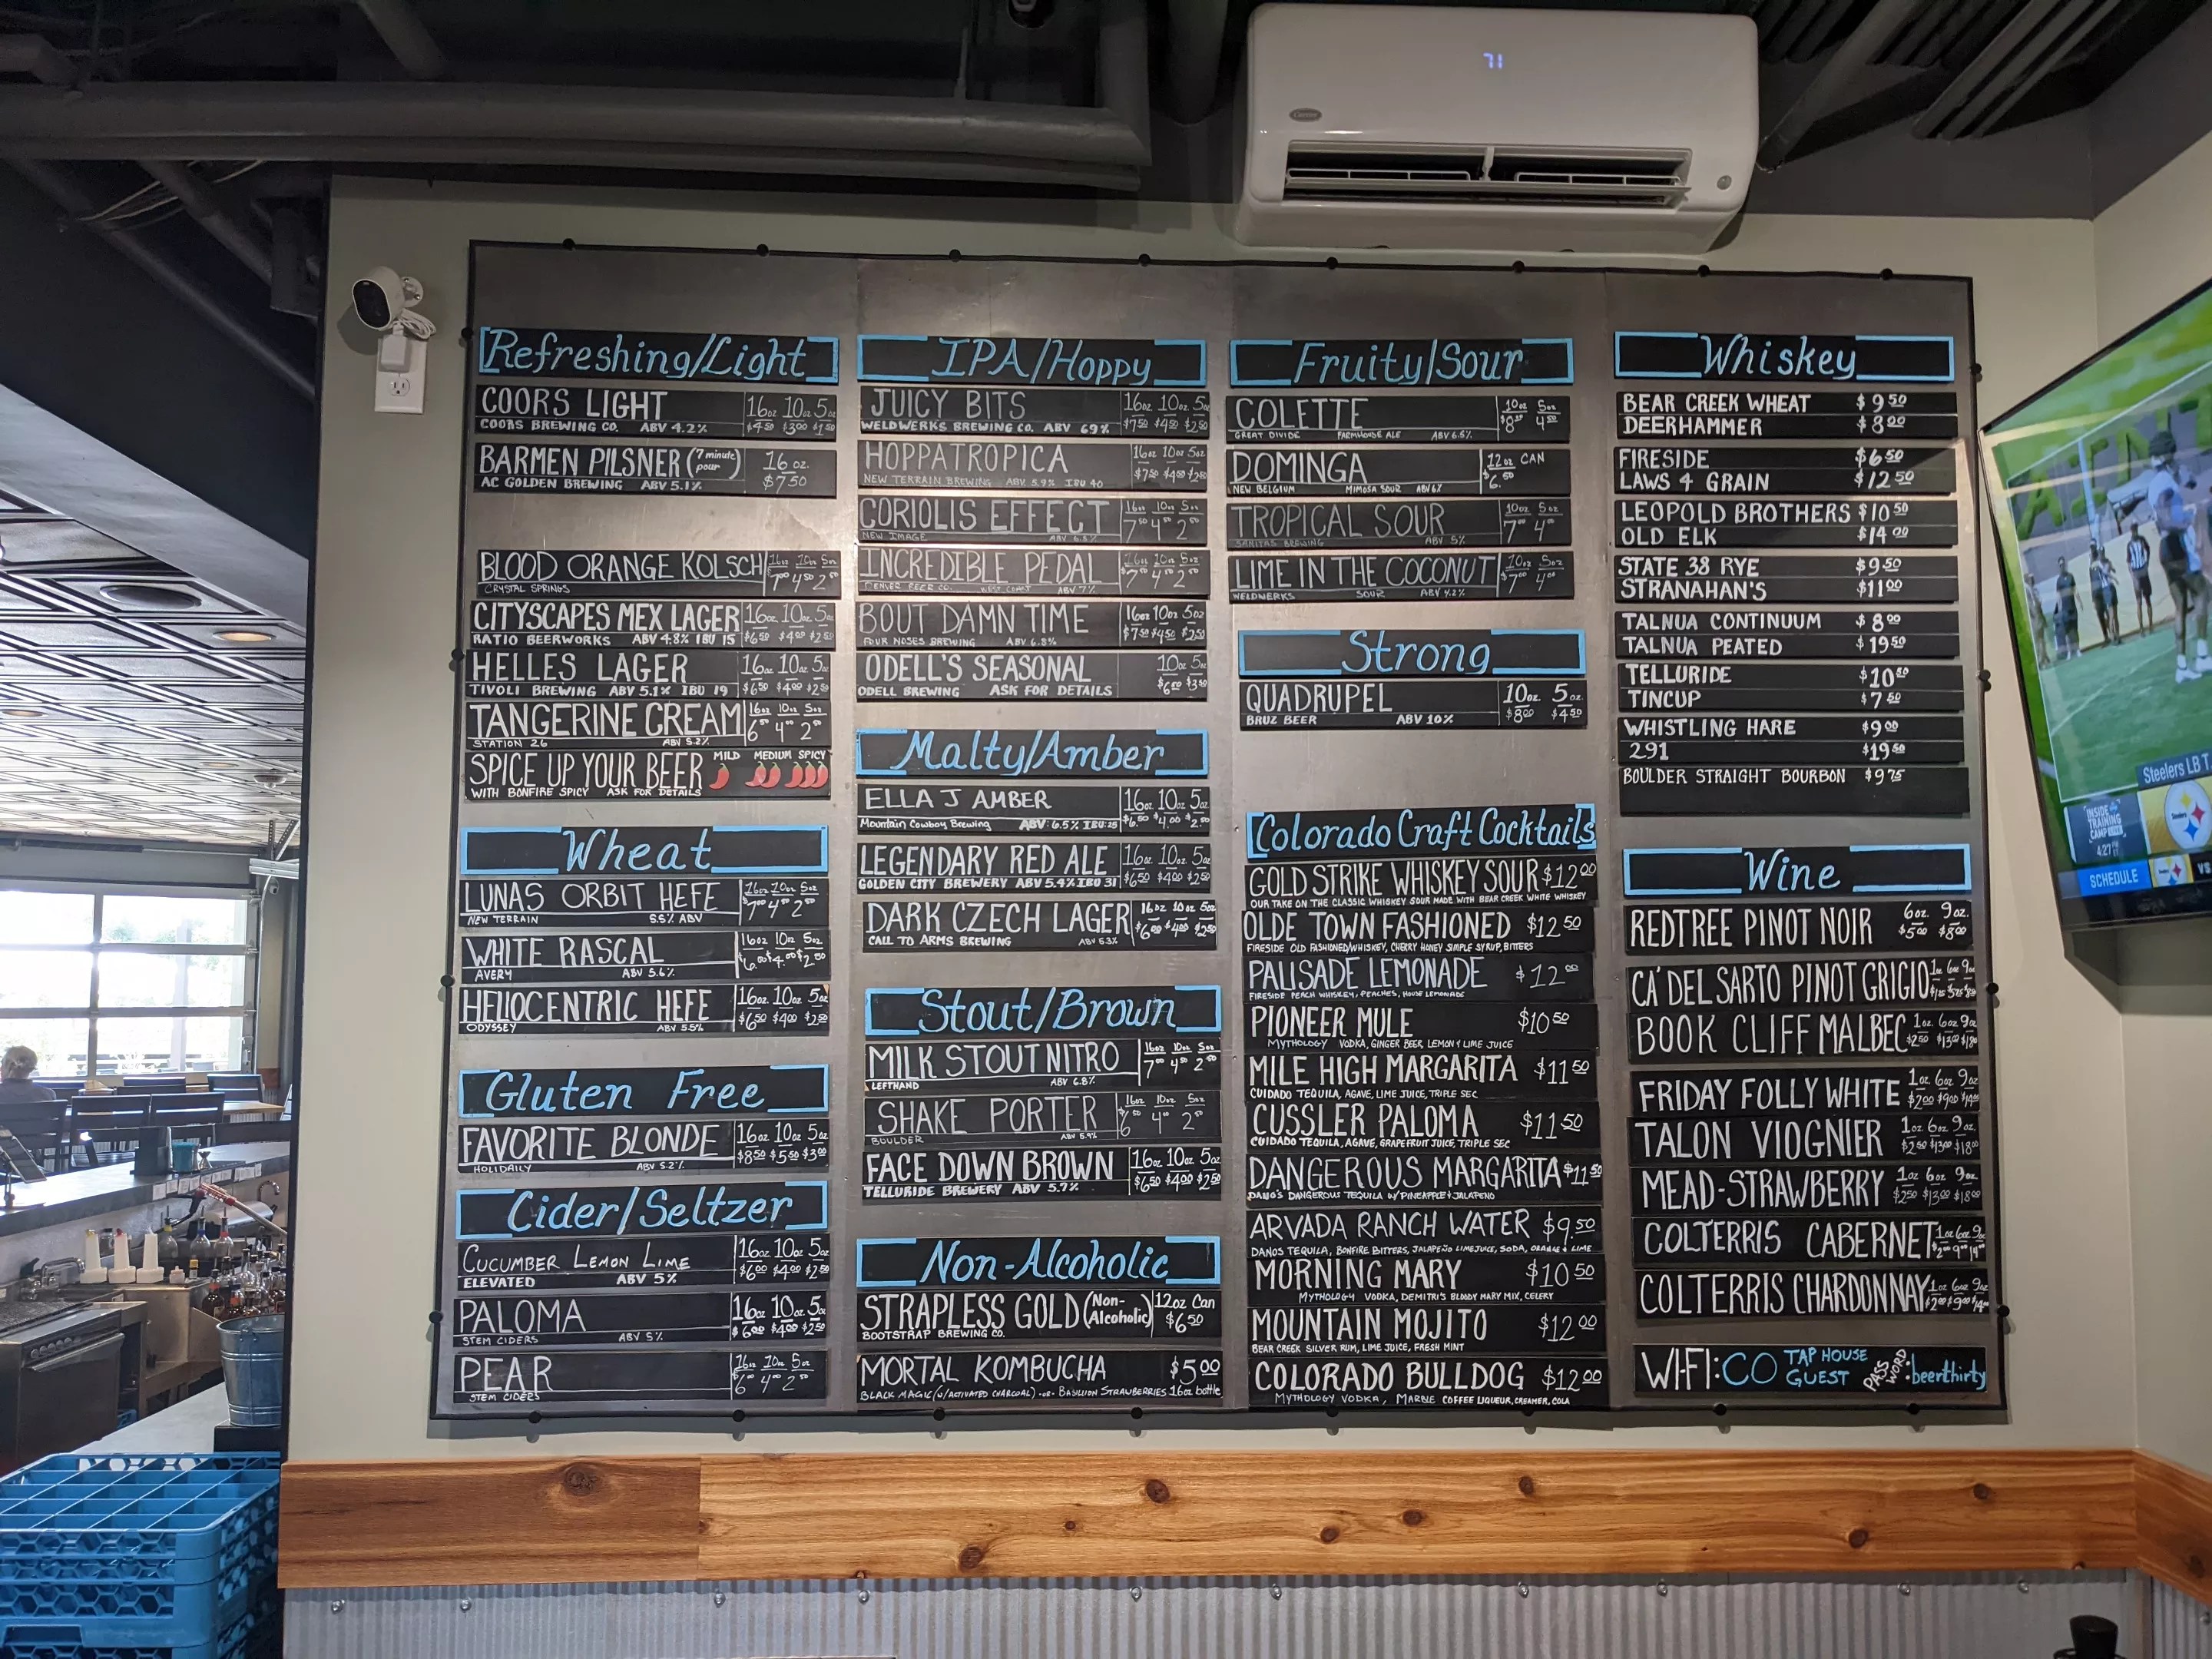 71
Carrier
Refreshing/Light
COORS LIGHT 16oz 10oz 5oz
COORS BREWING CO. ABV 4.2% $4.50 $3.00 $1.50
BARMEN PILSNER (7 minute pour) 16 oz.
AC GOLDEN BREWING ABV 5.1% $7.50
BLOOD ORANGE KOLSCH 16oz 10oz 5oz
CRYSTAL SPRINGS $7.00 4.50 2.50
CITYSCAPES MEX LAGER 16oz 10oz 5oz
RATIO BEERWORKS ABV 4.8% IBU 15 $6.50 $4.00 $2.50
HELLES LAGER 16oz 10oz 5oz
TIVOLI BREWING ABV 5.1% IBU 19 $6.50 $4.00 $2.50
TANGERINE CREAM 16oz 10oz 5oz
STATION 26 ABV 5.2% 6.50 4.00 2.50
SPICE UP YOUR BEER MILD MEDIUM SPICY
WITH BONFIRE SPICY ASK FOR DETAILS
Wheat
LUNAS ORBIT HEFE 16oz 10oz 5oz
NEW TERRAIN 5.5% ABV $7.00 4.50 2.50
WHITE RASCAL 16oz 10oz 5oz
AVERY ABV 5.6% $6.00 $4.00 $2.50
HELIOCENTRIC HEFE 16oz 10oz 5oz
ODYSSEY ABV 5.5% $6.50 $4.00 $2.50
Gluten Free
FAVORITE BLONDE 16oz 10oz 5oz
HOLIDAILY ABV 5.2% $8.50 $5.50 $3.00
Cider/Seltzer
CUCUMBER LEMON LIME 16oz 10oz 5oz
ELEVATED ABV 5% $6.00 $4.00 $2.50
PALOMA 16oz 10oz 5oz
STEM CIDERS ABV 5% $6.00 $4.00 $2.50
PEAR 16oz 10oz 5oz
STEM CIDERS 6.00 4.00 2.50
IPA/Hoppy
JUICY BITS 16oz 10oz 5oz
WELDWERKS BREWING CO. ABV 69% $7.50 $4.50 $2.50
HOPPATROPICA 16oz 10oz 5oz
NEW TERRAIN BREWING ABV 5.9% IBU 40 $7.50 $4.50 $2.50
CORIOLIS EFFECT 16oz 10oz 5oz
NEW IMAGE 7.50 4.50 2.50
INCREDIBLE PEDAL 16oz 10oz 5oz
DENVER BEER CO. WEST COAST ABV 7% 7.00 4.50 2.50
BOUT DAMN TIME 16oz 10oz 5oz
FOUR NOSES BREWING ABV 6.8% $7.50 $4.50 $2.50
ODELL'S SEASONAL 10oz 5oz
ODELL BREWING ASK FOR DETAILS $6.50 $3.50
Malty/Amber
ELLA J AMBER 16oz 10oz 5oz
Mountain Cowboy Brewing ABV: 6.5% IBU:25 $6.50 $4.00 $2.50
LEGENDARY RED ALE 16oz 10oz 5oz
GOLDEN CITY BREWERY ABV 5.4% IBU 31 $6.50 $4.00 $2.50
DARK CZECH LAGER 16oz 10oz 5oz
CALL TO ARMS BREWING ABV 5.3% $6.00 $4.00 $2.50
Stout/Brown
MILK STOUT NITRO 16oz 10oz 5oz
LEFTHAND ABV 6.8% 7.00 4.50 2.50
SHAKE PORTER 16oz 10oz 5oz
BOULDER ABV 5.9% 6.50 4.00 2.50
FACE DOWN BROWN 16oz 10oz 5oz
TELLURIDE BREWERY ABV 5.7% $6.50 $4.00 $2.50
Non-Alcoholic
STRAPLESS GOLD (Non-Alcoholic) 12oz Can
BOOTSTRAP BREWING CO. $6.50
MORTAL KOMBUCHA $5.00
BLACK MAGIC (w/ACTIVATED CHARCOAL) -or- BASILION STRAWBERRIES 16oz bottle
Fruity/Sour
COLETTE 10oz 5oz
GREAT DIVIDE FARMHOUSE ALE ABV 6.5% $8.50 4.50
DOMINGA 12oz CAN
NEW BELGIUM MIMOSA SOUR ABV 6% $6.50
TROPICAL SOUR 10oz 5oz
SANITAS BREWING ABV 5% 7.00 4.00
LIME IN THE COCONUT 10oz 5oz
WELDWERKS SOUR ABV 4.2% 7.00 4.00
Strong
QUADRUPEL 10oz. 5oz.
BRUZ BEER ABV 10% $8.00 $4.50
Colorado Craft Cocktails
GOLD STRIKE WHISKEY SOUR $12.00
OUR TAKE ON THE CLASSIC WHISKEY SOUR MADE WITH BEAR CREEK WHITE WHISKEY
OLDE TOWN FASHIONED $12.50
FIRESIDE OLD FASHIONED/WHISKEY, CHERRY HONEY SIMPLE SYRUP, BITTERS
PALISADE LEMONADE $12.00
FIRESIDE PEACH WHISKEY, PEACHES, HOUSE LEMONADE
PIONEER MULE $10.50
MYTHOLOGY VODKA, GINGER BEER, LEMON & LIME JUICE
MILE HIGH MARGARITA $11.50
CUIDADO TEQUILA, AGAVE, LIME JUICE, TRIPLE SEC
CUSSLER PALOMA $11.50
CUIDADO TEQUILA, AGAVE, GRAPEFRUIT JUICE, TRIPLE SEC
DANGEROUS MARGARITA $11.50
DANO'S DANGEROUS TEQUILA W/PINEAPPLE & JALAPENO
ARVADA RANCH WATER $9.50
DANOS TEQUILA, BONFIRE BITTERS, JALAPEÑO LIMEJUICE, SODA, ORANGE & LIME
MORNING MARY $10.50
MYTHOLOGY VODKA, DEMITRI'S BLOODY MARY MIX, CELERY
MOUNTAIN MOJITO $12.00
BEAR CREEK SILVER RUM, LIME JUICE, FRESH MINT
COLORADO BULLDOG $12.00
MYTHOLOGY VODKA, MARBLE COFFEE LIQUEUR, CREAMER, COLA
Whiskey
BEAR CREEK WHEAT $9.50
DEERHAMMER $8.00
FIRESIDE $6.50
LAWS 4 GRAIN $12.50
LEOPOLD BROTHERS $10.50
OLD ELK $14.00
STATE 38 RYE $9.50
STRANAHAN'S $11.00
TALNUA CONTINUUM $8.00
TALNUA PEATED $19.50
TELLURIDE $10.50
TINCUP $7.50
WHISTLING HARE $9.00
291 $19.50
BOULDER STRAIGHT BOURBON $9.75
Wine
REDTREE PINOT NOIR 6oz. 9oz.
$5.00 $8.00
CA' DEL SARTO PINOT GRIGIO 1oz 6oz 9oz
BOOK CLIFF MALBEC 1oz. 6oz 9oz
$2.50 $13.00 $18.00
FRIDAY FOLLY WHITE 1oz. 6oz 9oz
$2.00 $9.00 $14.00
TALON VIOGNIER 1oz 6oz 9oz.
$2.50 $13.00 $18.00
MEAD-STRAWBERRY 1oz 6oz 9oz.
$2.50 $13.00 $18.00
COLTERRIS CABERNET 1oz 6oz 9oz
$2.00 $9.00 $14.00
COLTERRIS CHARDONNAY 1oz 6oz 9oz
$2.00 $9.00 $14.00
WI-FI: CO TAP HOUSE GUEST PASSWORD: beerthirty
Steelers LB T.
INSIDE TRAINING CAMP LIVE
Steelers
4:27 PM ET
SCHEDULE
VS